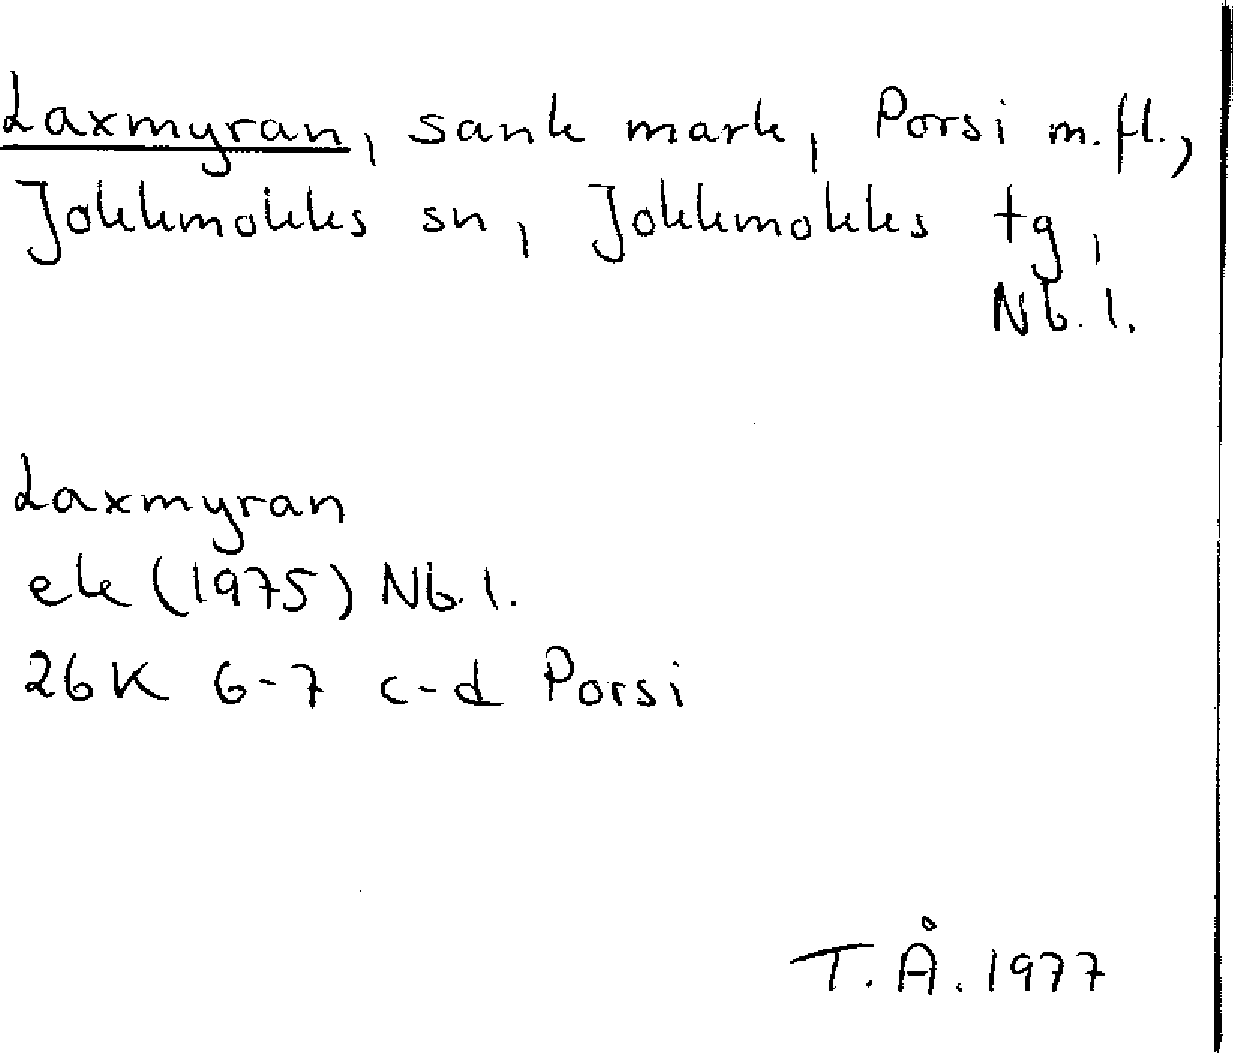 Laxmyran, sank mark, Porsi m.fl.,
Jokkmokks sn, Jokkmokks tg,
Nb. l.
Laxmyran
ek (1975) Nb. l.
26K 6-7 c-d Porsi
T. Å. 1977